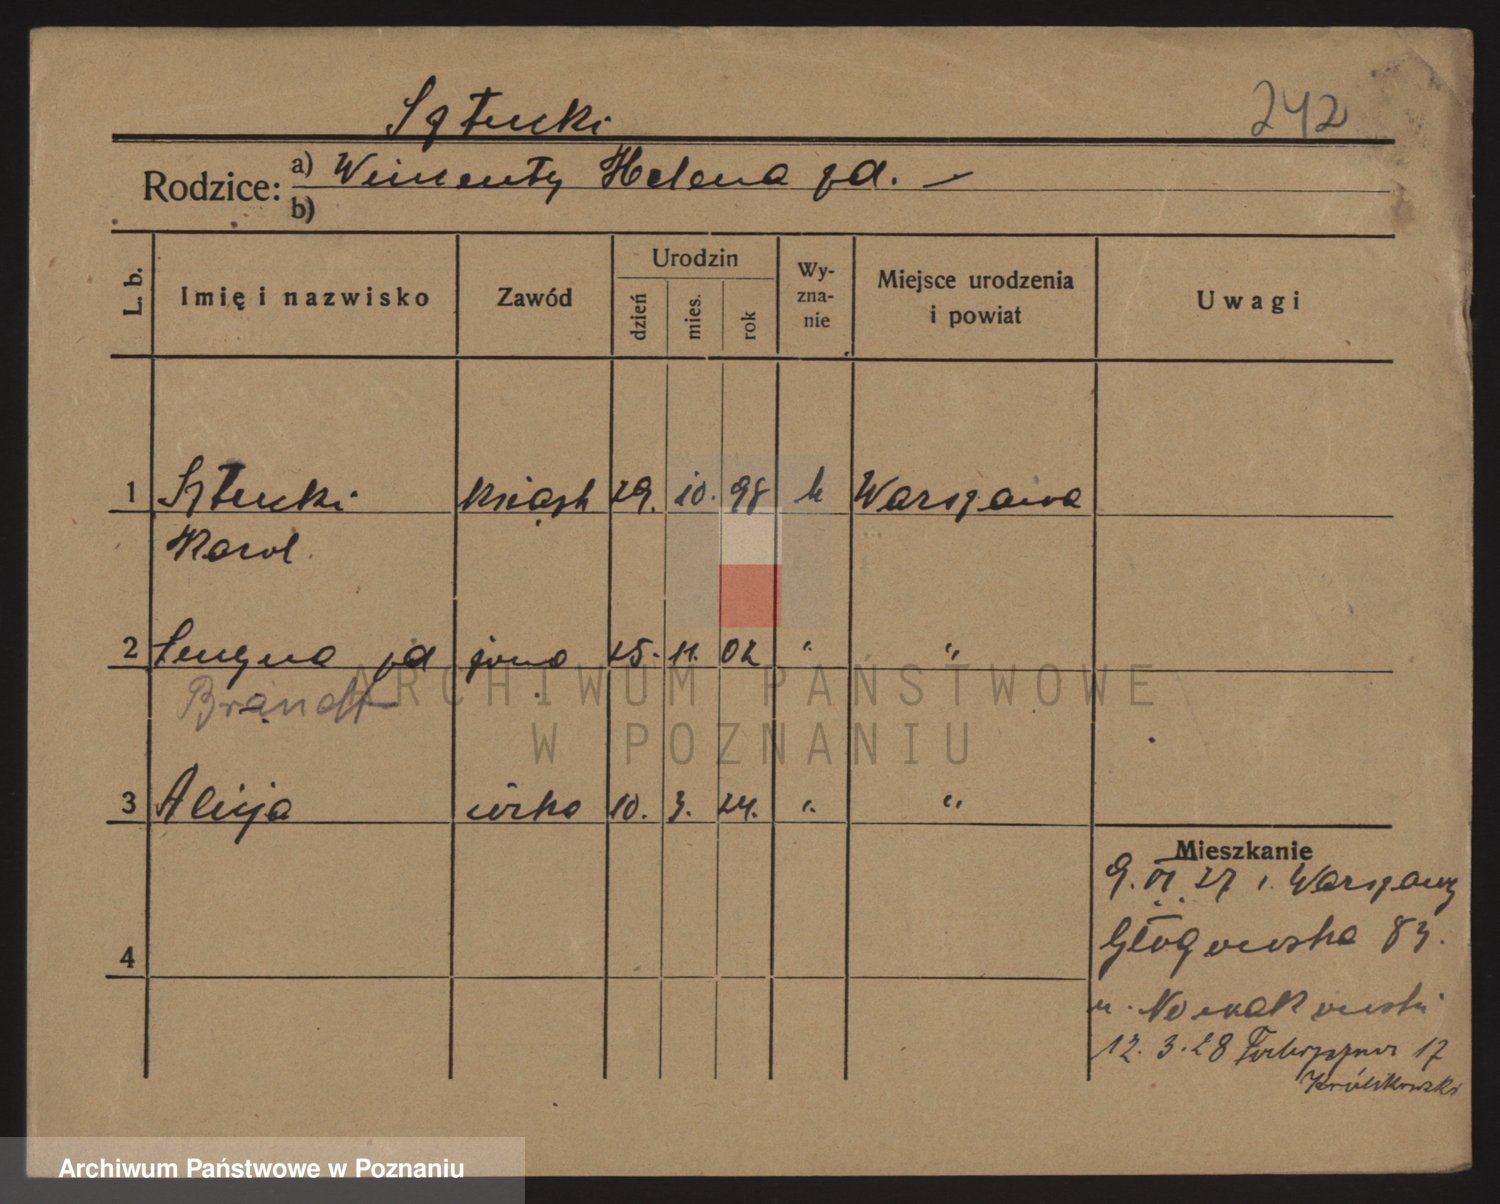 Sztucki
242
Rodzice: a) Wincenty Helena zd. —
b)
L. b. Imię i nazwisko Zawód Urodzin dzień mies. rok Wyznanie Miejsce urodzenia i powiat Uwagi
1 Sztucki książk 29. 10. 98 k Warszawa
Karol
2 zd żona 25. 11. 02 " "
Brandt
3 Alicja córka 10. 3. 24. " "
4
Mieszkanie
9. VI 27 z Warszawy
Głogowska 83.
u. Nowakowski
12. 3. 28 17
Królikowski
ARCHIWUM PAŃSTWOWE
W POZNANIU
Archiwum Państwowe w Poznaniu